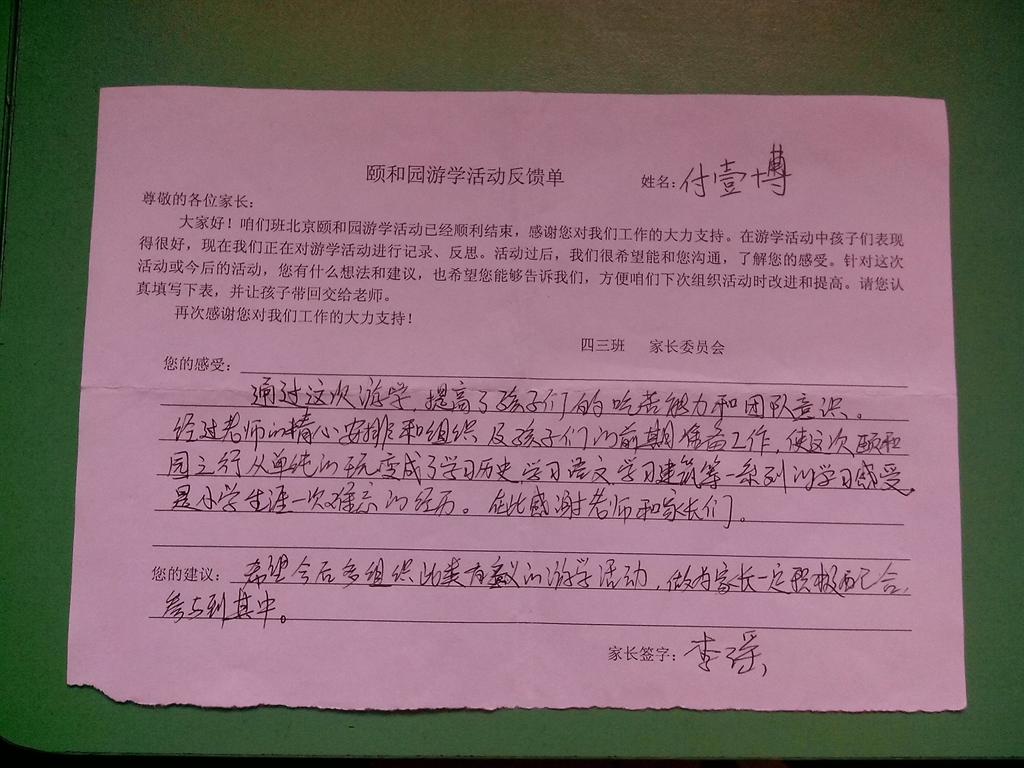 颐和园游学活动反馈单
姓名：付壹博
尊敬的各位家长：
大家好！咱们班北京颐和园游学活动已经顺利结束，感谢您对我们工作的大力支持。在游学活动中孩子们表现
得很好，现在我们正在对游学活动进行记录、反思。活动过后，我们很希望能和您沟通，了解您的感受。针对这次
活动或今后的活动，您有什么想法和建议，也希望您能够告诉我们，方便咱们下次组织活动时改进和提高。请您认
真填写下表，并让孩子带回交给老师。
再次感谢您对我们工作的大力支持！
四三班 家长委员会
您的感受：
通过这次游学，提高了孩子们的吃苦能力和团队意识。
经过老师的精心安排和组织及孩子们的前期准备工作，使这次颐和
园之行从单纯的玩变成了学习历史、学习语文、学习建筑等一系列的学习感受，
是小学生涯一次难忘的经历。在此感谢老师和家长们。
您的建议：希望今后多组织此类有意义的游学活动，做为家长一定积极配合，
参与到其中。
家长签字：李瑶